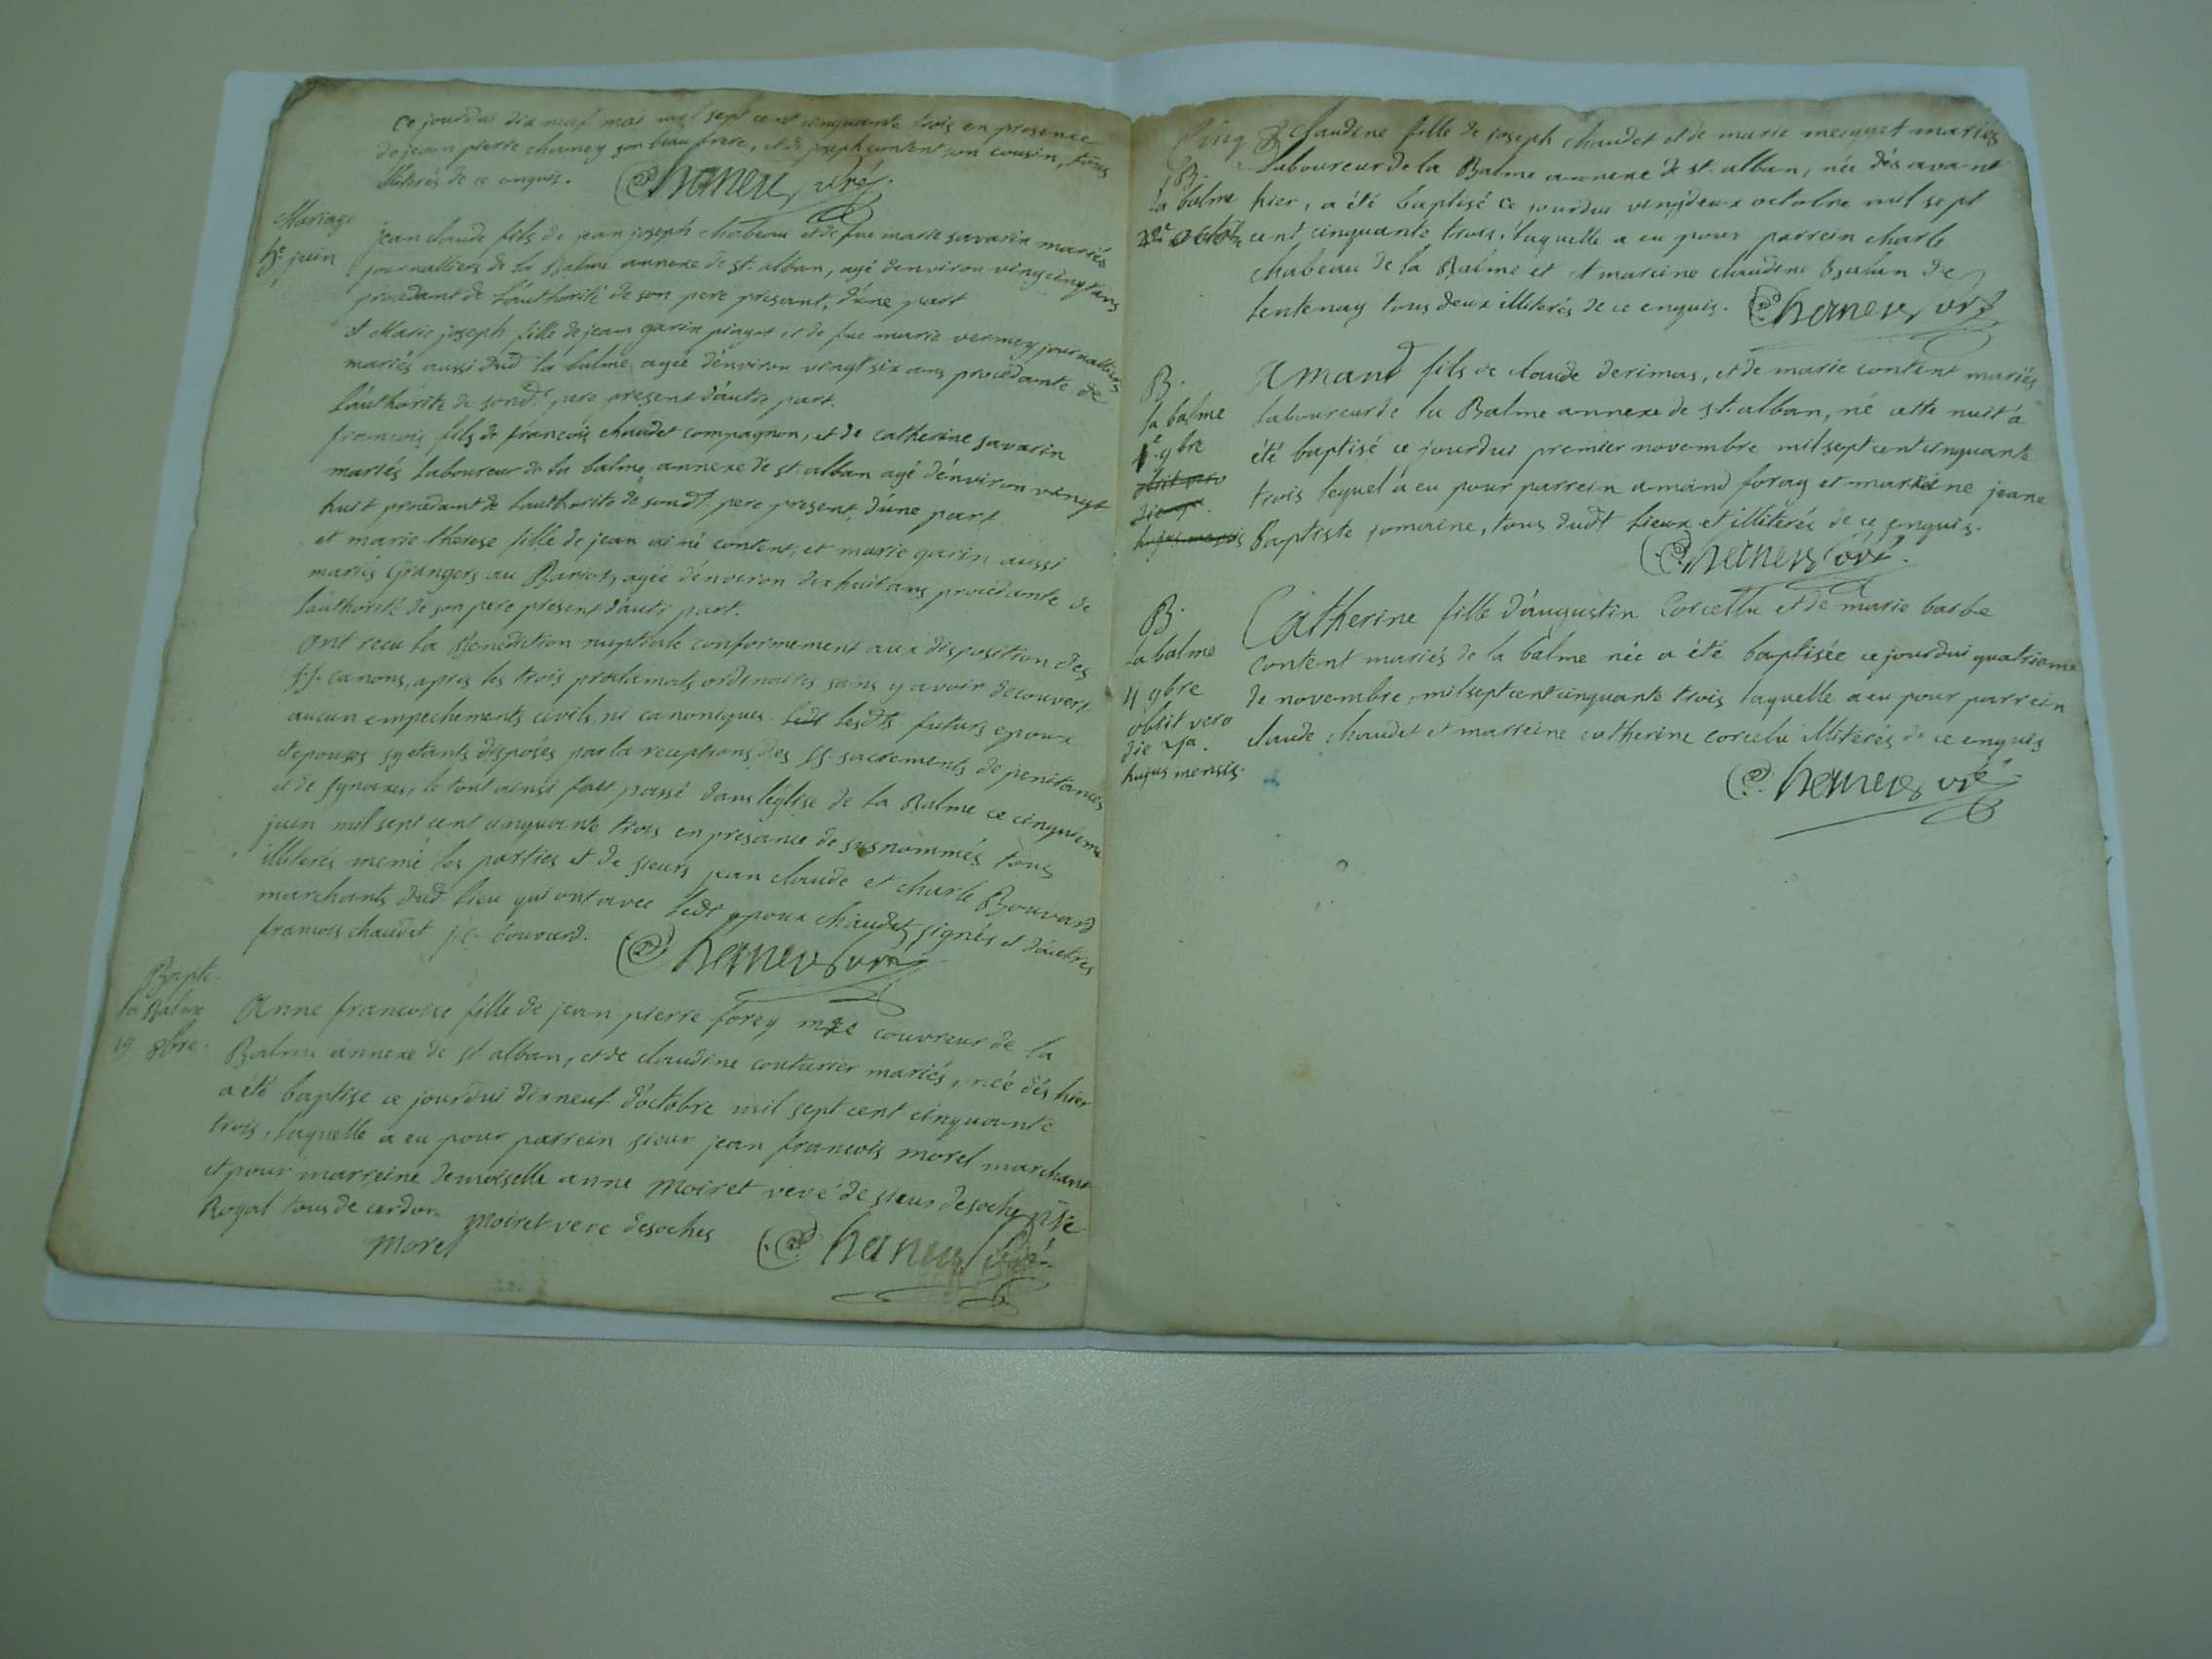 ce jourdui dix neuf mai mil sept cent cinquante trois en presence
de jean pierre chaney son beau frere, et de joseph content son cousin, tous
illiterés de ce enquis.
Mariage
5e juin
jean claude fils de jean joseph chabeau et de fue marie savarin mariés
journalliers de la Balme annexe de st. alban, agé denviron vingt cinq ans
procedant de l'authorité de son pere present, d'une part
et Marie joseph fille de jean garin et de fue marie vermey journalliers
mariés aussi dud la balme agée d'environ vingt six ans procedante de
l'authorité de sond. pere present d'autre part.
francois fils de francois chaudet compagnon, et de catherine savarin
mariés laboureur de la balme annexe de st alban agé d'environ vingt
huit procedant de l'authorité de sondt. pere present, d'une part
et marie therese fille de jean ainé content, et marie garin aussi
mariés Grangers au agée d'environ dix huit ans procedante de
l'authorité de son pere present d'autr part.
Ont recu la Benediction nuptiale conformement aux disposition des
s.s. canons, apres les trois proclamats ordinaires sans y avoir decouvert
aucun empechements civils ni canoniques. ledt lesdts futurs epoux
et epouses sy etants disposés par la receptions des ss sacrements de penitances
et de synaxes, le tout ainsi fait passé dans leglise de la Balme ce cinquieme
juin mil sept cent cinquante trois en presance de susnommés tous
illiterés meme les parties et de sieurs jean claude et charle Bouvard
marchants dud lieu qui ont avec ledt epoux chaudet signés et d'autres
francois chaudet j. c. bouvard.
Bapte.
la Balme
19 8bre.
Anne francoise fille de jean pierre forey couvreur de la
Balme annexe de st alban, et de claudine couturier mariés, née dés hier
a été baptisé ce jourdui dixneuf d'octobre mil sept cent cinquante
trois, laquelle a eu pour parrein sieur jean francois morel marchant
et pour marreine demoiselle anne moiret veve de sieur desoche nre
Royal tous de cerdon
moiret veve desoches
morel
Cinq
B.
la balme
22e octobre
Claudine fille de joseph chaudet et de marie mecquet mariés
Laboureur de la Balme annexe de st. alban, née dés avant
hier, a été baptisé ce jourdui vingdeux octobre mil sept
cent cinquante trois, laquelle a eu pour parrein charle
chabeau de la Balme et marreine claudine de
lentenay tous deux illiterés de ce enquis.
B.
la balme
1e. 9bre
obiit vero
die
hujus mensis
Amand fils de claude derimas, et de marie content mariés
laboureur de la Balme annexe de st. alban, né cette nuit a
été baptisé ce jourdui premier novembre mil sept cent cinquante
trois lequel a eu pour parrein amand foray et marreine jeane
Baptiste jomaine, tous dudt lieux et illiterés de ce enquis.
B.
la balme
4 9bre
obiit vero
die
hujus mensis.
Catherine fille d'augustin Corcellu et de marie barbe
content mariés de la balme née a été baptisée ce jourdui quatrieme
de novembre mil sept cent cinquante trois laquelle a eu pour parrein
claude chaudet et marreine catherine corcelu illiterés de ce enquis